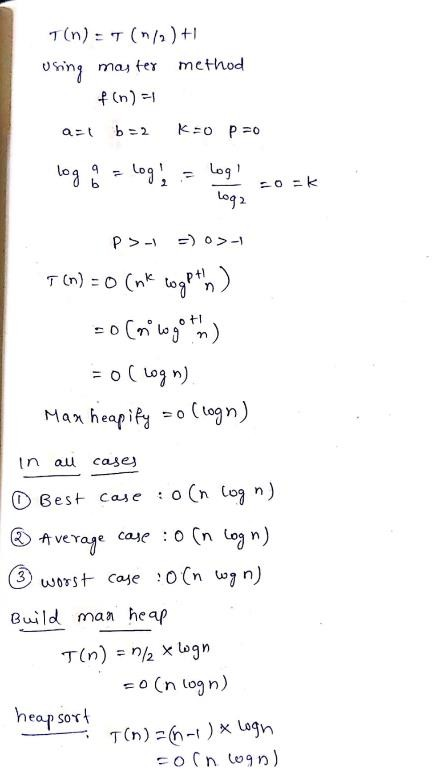 T(n) = T(n/2)+1
Using master method
f(n) =1
a=1 b=2 K=0 P=0
log a b = log 1 2 = log 1 / log 2 = 0 = k
P > -1 => 0 > -1
T(n) = O(n^k log^{p+1} n)
= O(n^0 log^{0+1} n)
= O(log n)
Max heapify = O(log n)
In all cases
① Best case : O(n log n)
② Average case : O(n log n)
③ worst case : O(n log n)
Build max heap
T(n) = n/2 × logn
= O(n logn)
heapsort
T(n) = (n-1) × logn
= O(n logn)